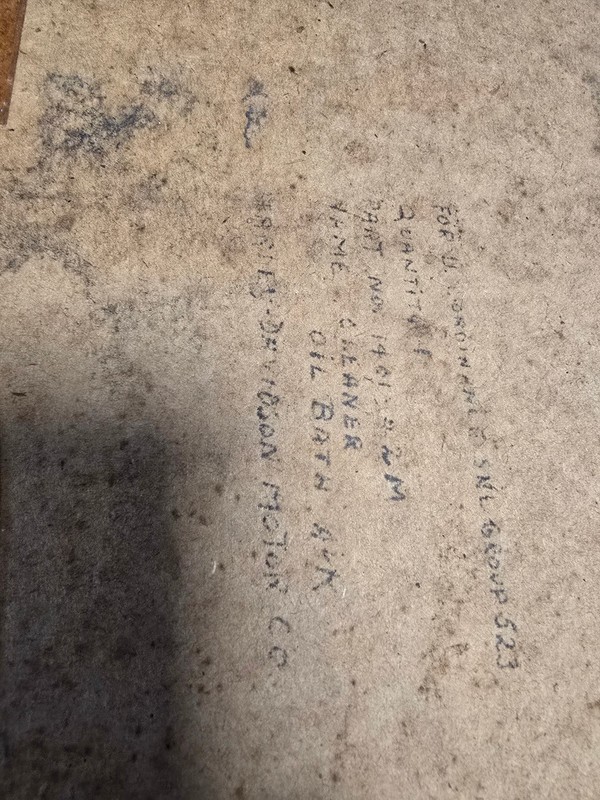 FOR U.S ORDINANCE SNL GROUP 523
QUANTITY
PART NO. 1401-42M
NAME CLEANER
OIL BATH AIR
HARLEY-DAVIDSON MOTOR CO